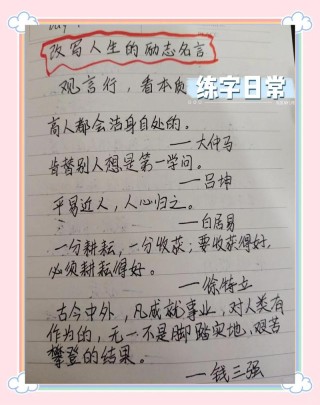 改写人生的励志名言
观言行，看本质
练字日常
商人都会洁身自处的。
——大仲马
肯替别人想是第一学问。
——吕坤
平易近人，人心归之。
——白居易
一分耕耘，一分收获；要收获得好，
必须耕耘得好。
——徐特立
古今中外，凡成就事业，对人类有
作为的，无一不是脚踏实地，艰苦
攀登的结果。
——钱三强